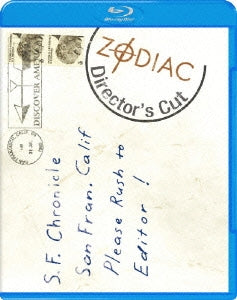 Blu-ray Disc
ZODIAC
Director's Cut
DISCOVER AMERICA
S.F. Chronicle
San Fran. Calif
Please Rush to
Editor!